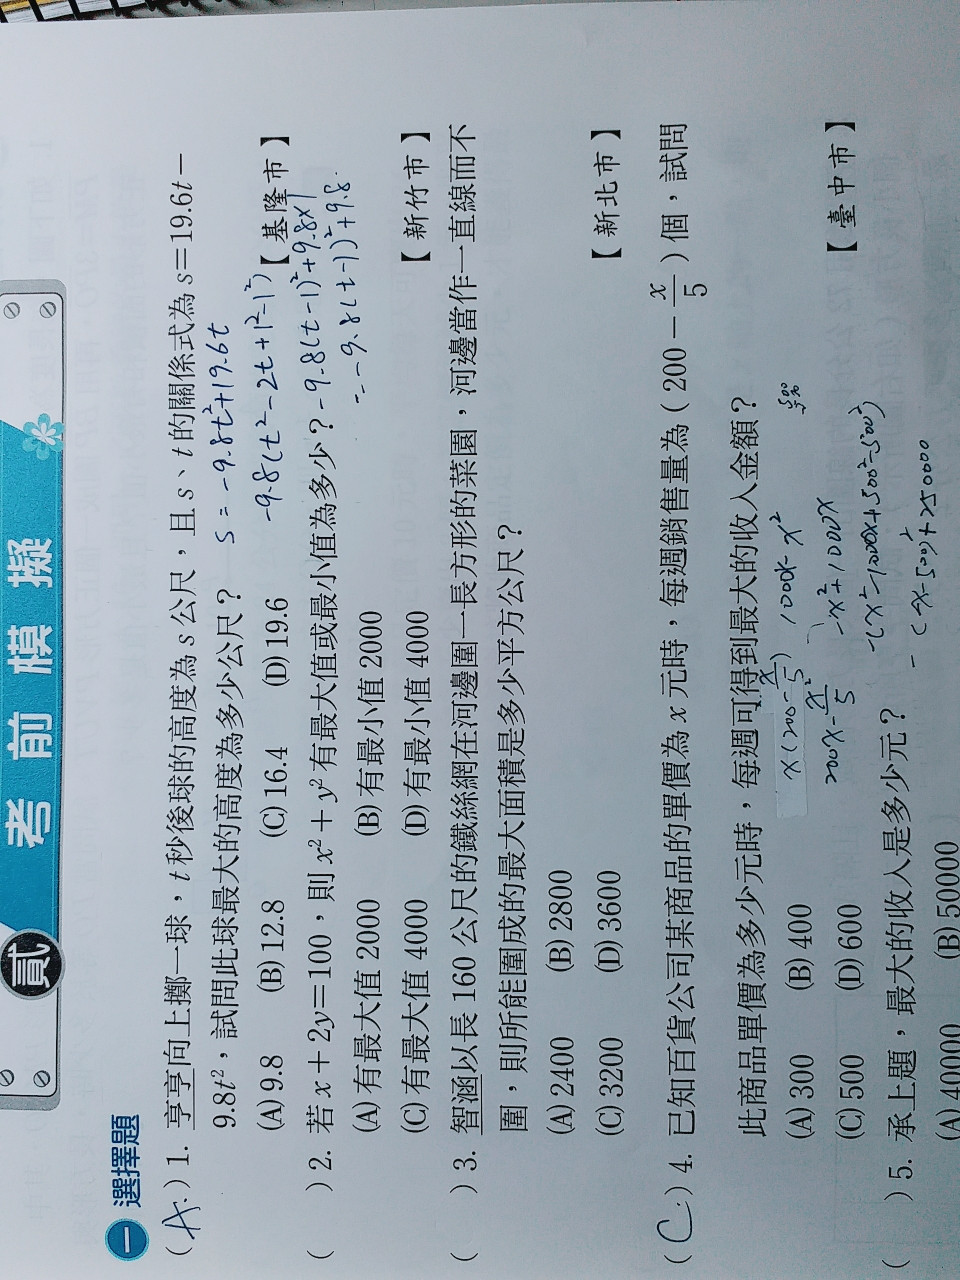 貳 考前模擬
一 選擇題
(A.) 1. 亨亨向上擲一球，t 秒後球的高度為 s 公尺，且 s、t 的關係式為 s＝19.6t－
9.8t²，試問此球最大的高度為多少公尺？ s = -9.8t²+19.6t
(A) 9.8 (B) 12.8 (C) 16.4 (D) 19.6 -9.8(t²-2t+1²-1²) 【基隆市】
( ) 2. 若 x＋2y＝100，則 x²＋y² 有最大值或最小值為多少？ -9.8(t-1)²+9.8×1
(A) 有最大值 2000 (B) 有最小值 2000 = -9.8(t-1)²+9.8.
(C) 有最大值 4000 (D) 有最小值 4000 【新竹市】
( ) 3. 智涵以長 160 公尺的鐵絲網在河邊圍一長方形的菜園，河邊當作一直線而不
圍，則所能圍成的最大面積是多少平方公尺？
(A) 2400 (B) 2800
(C) 3200 (D) 3600 【新北市】
(C.) 4. 已知百貨公司某商品的單價為 x 元時，每週銷售量為（200－x/5）個，試問
此商品單價為多少元時，每週可得到最大的收入金額？
(A) 300 (B) 400 x(200-x/5) 1000x-x²
(C) 500 (D) 600 200x-x²/5 -x²+1000x 【臺中市】
-(x²-1000x+500²-500²)
( ) 5. 承上題，最大的收入是多少元？ -(x-500)²+250000
(A) 40000 (B) 50000